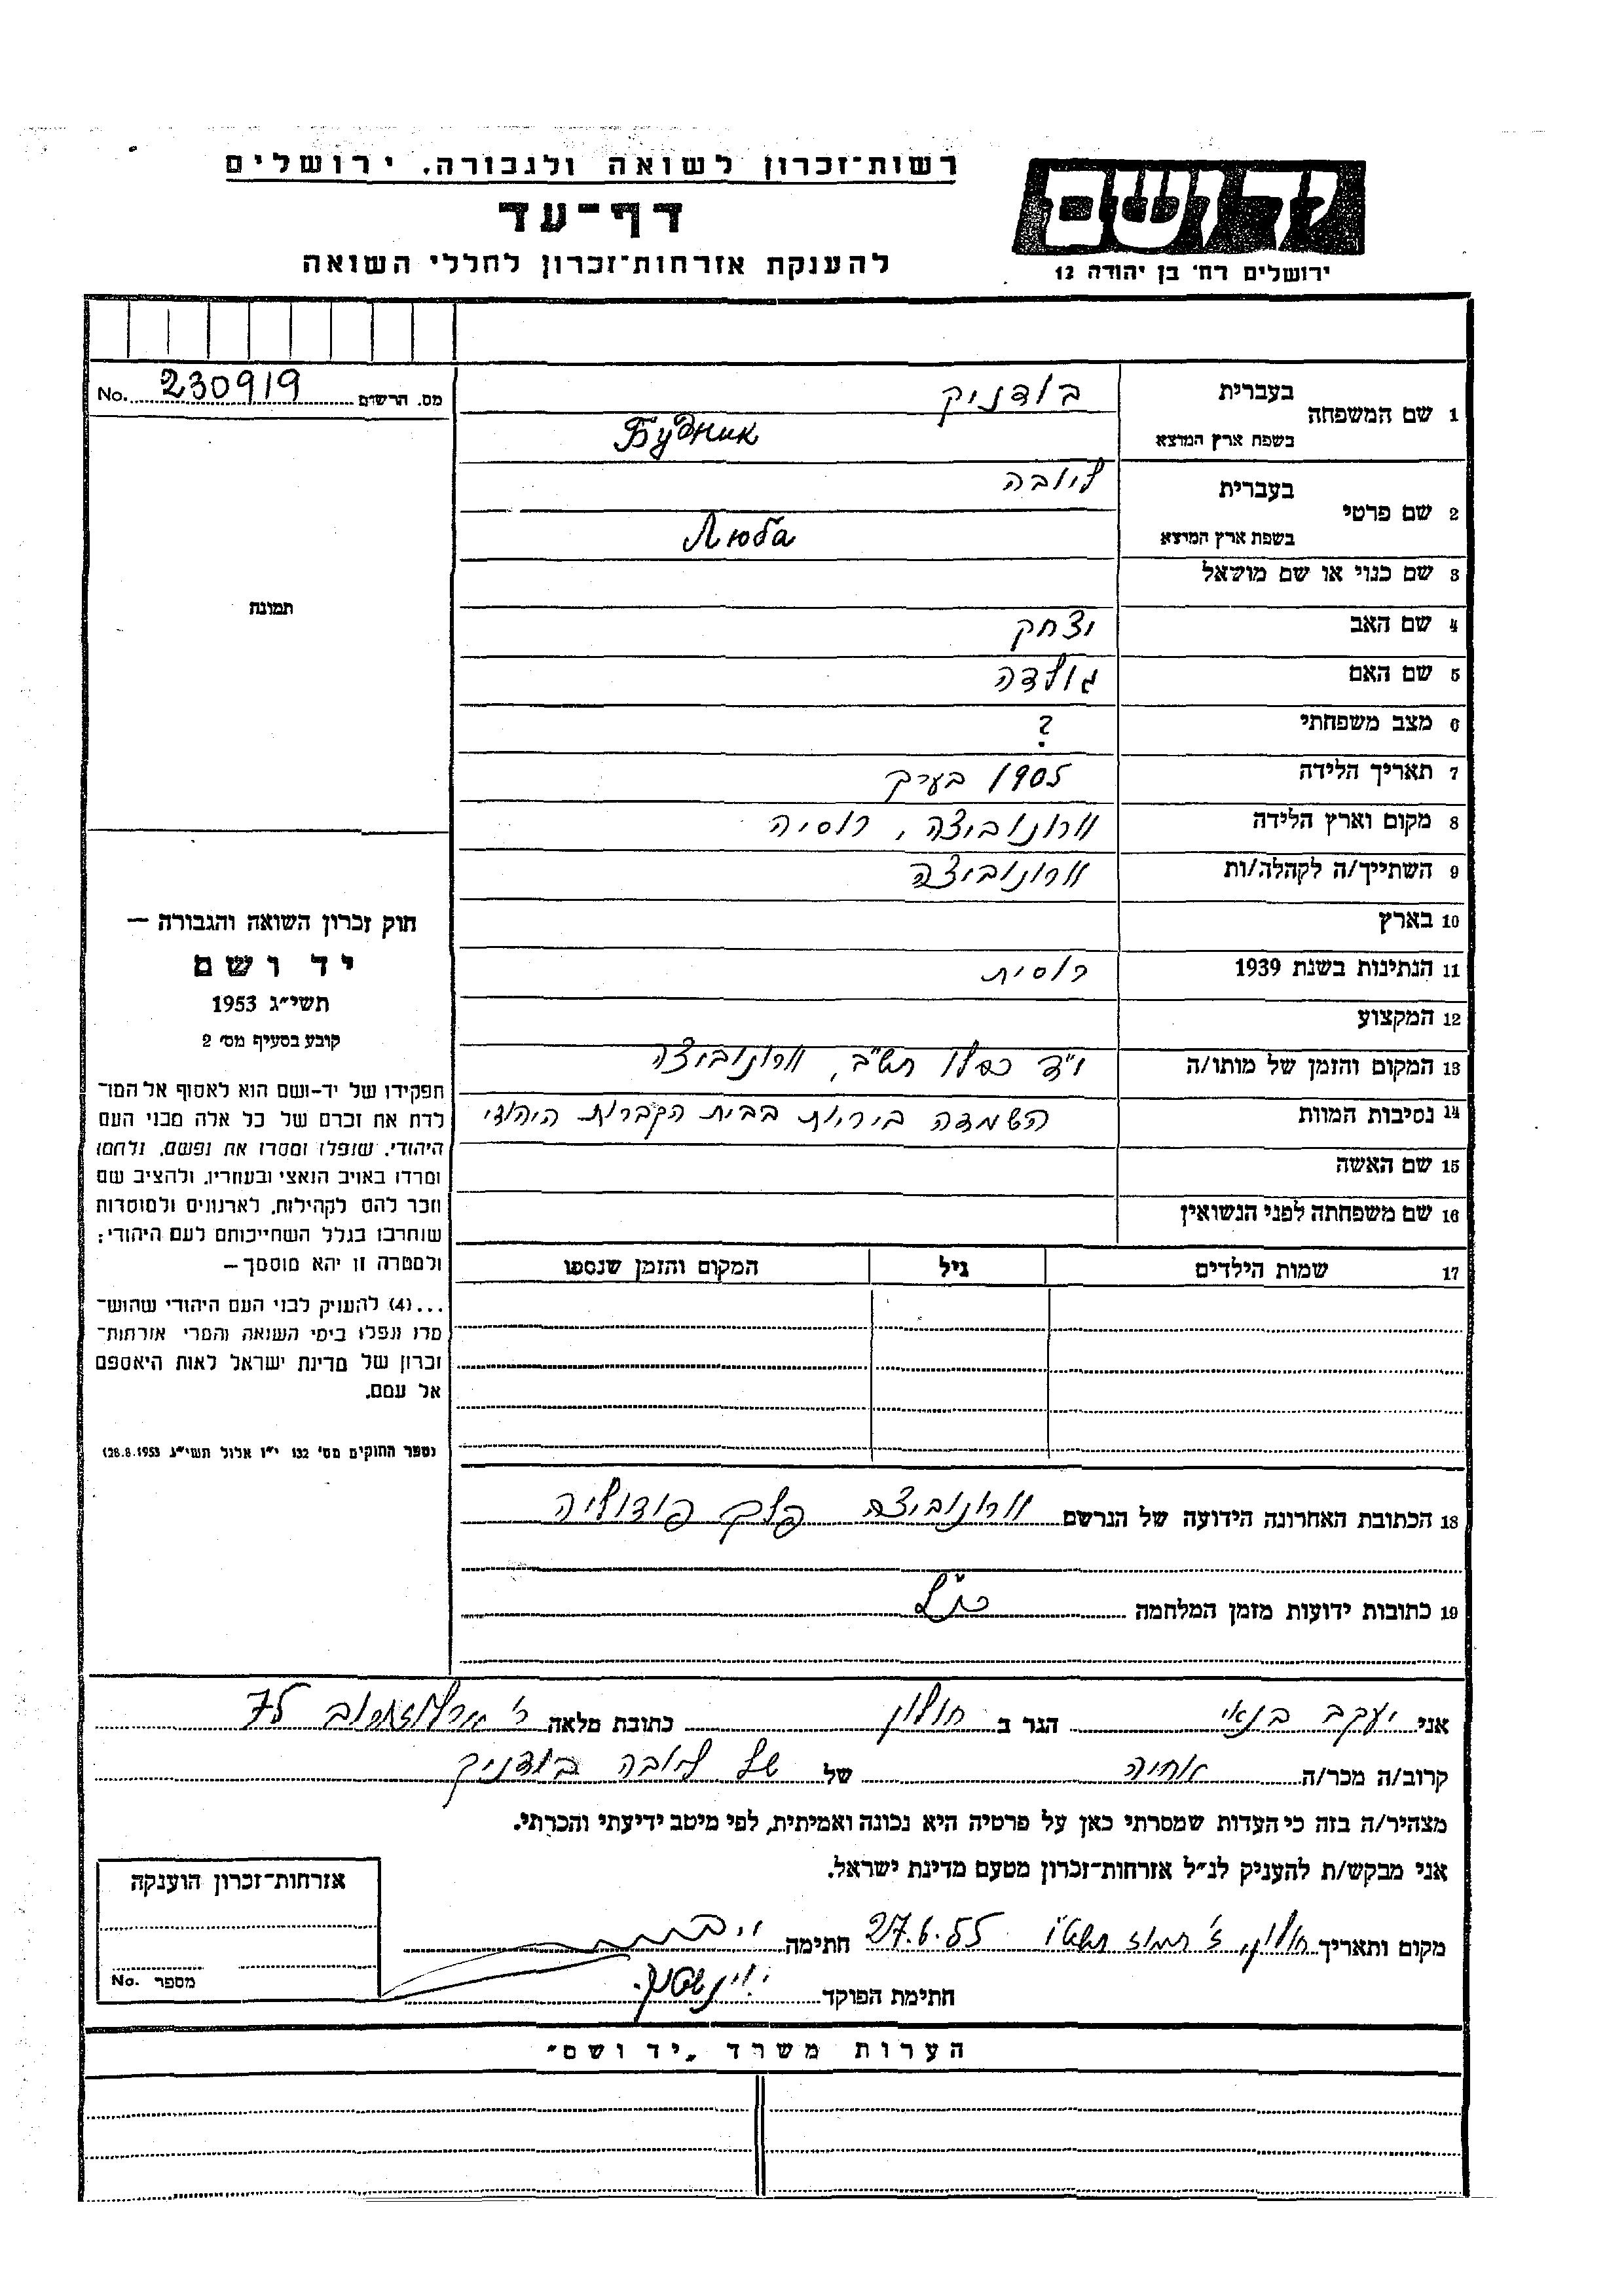 רשות־זכרון לשואה ולגבורה. ירושלים
דף־עד
להענקת אזרחות־זכרון לחללי השואה
יד ושם
ירושלים רח׳ בן יהודה 12
מס. הרשום 230919 No.
1 שם המשפחה
בעברית בודניק
בשפת ארץ המוצא Будник
2 שם פרטי
בעברית ליובה
בשפת ארץ המוצא Люба
3 שם כנוי או שם מושאל
4 שם האב יצחק
5 שם האם גולדה
6 מצב משפחתי ?
7 תאריך הלידה 1905 בערך
8 מקום וארץ הלידה וורונוביצה, רוסיה
9 השתייך/ה לקהלה/ות וורונוביצה
10 בארץ
11 הנתינות בשנת 1939 רוסית
12 המקצוע
13 המקום והזמן של מותו/ה י״ד כסלו תש״ב, וורונוביצה
14 נסיבות המוות השמדה ביריות בבית הקברות היהודי
15 שם האשה
16 שם משפחתה לפני הנשואין
17 שמות הילדים גיל המקום והזמן שנספו
18 הכתובת האחרונה הידועה של הנרשם וורונוביצה פלך פודוליה
19 כתובות ידועות מזמן המלחמה כנ״ל
תמונה
חוק זכרון השואה והגבורה —
יד ושם
תשי״ג 1953
קובע בסעיף מס׳ 2
תפקידו של יד-ושם הוא לאסוף אל המו־
לדת את זכרם של כל אלה מבני העם
היהודי, שנפלו ומסרו את נפשם, נלחמו
ומרדו באויב הנאצי ובעוזריו, ולהציב שם
וזכר להם לקהילות, לארגונים ולמוסדות
שנחרבו בגלל השתייכותם לעם היהודי;
ולמטרה זו יהא מוסמך —
...(4) להעניק לבני העם היהודי שהוש־
מדו ונפלו בימי השואה והמרי אזרחות־
זכרון של מדינת ישראל לאות היאספם
אל עמם.
(ספר החוקים מס׳ 132 י״ז אלול תשי״ג 28.8.1953)
אני יעקב בנאי הגר ב חולון כתובת מלאה ר׳ ארלוזורוב 75
קרוב/ה מכר/ה אחיה של של ליובה בודניק
מצהיר/ה בזה כי העדות שמסרתי כאן על פרטיה היא נכונה ואמיתית, לפי מיטב ידיעתי והכרתי.
אני מבקש/ת להעניק לנ״ל אזרחות-זכרון מטעם מדינת ישראל.
מקום ותאריך חולון, ז׳ תמוז תשט״ו 27.6.55 חתימה
חתימת הפוקד
אזרחות-זכרון הוענקה
מספר No.
הערות משרד „יד ושם״